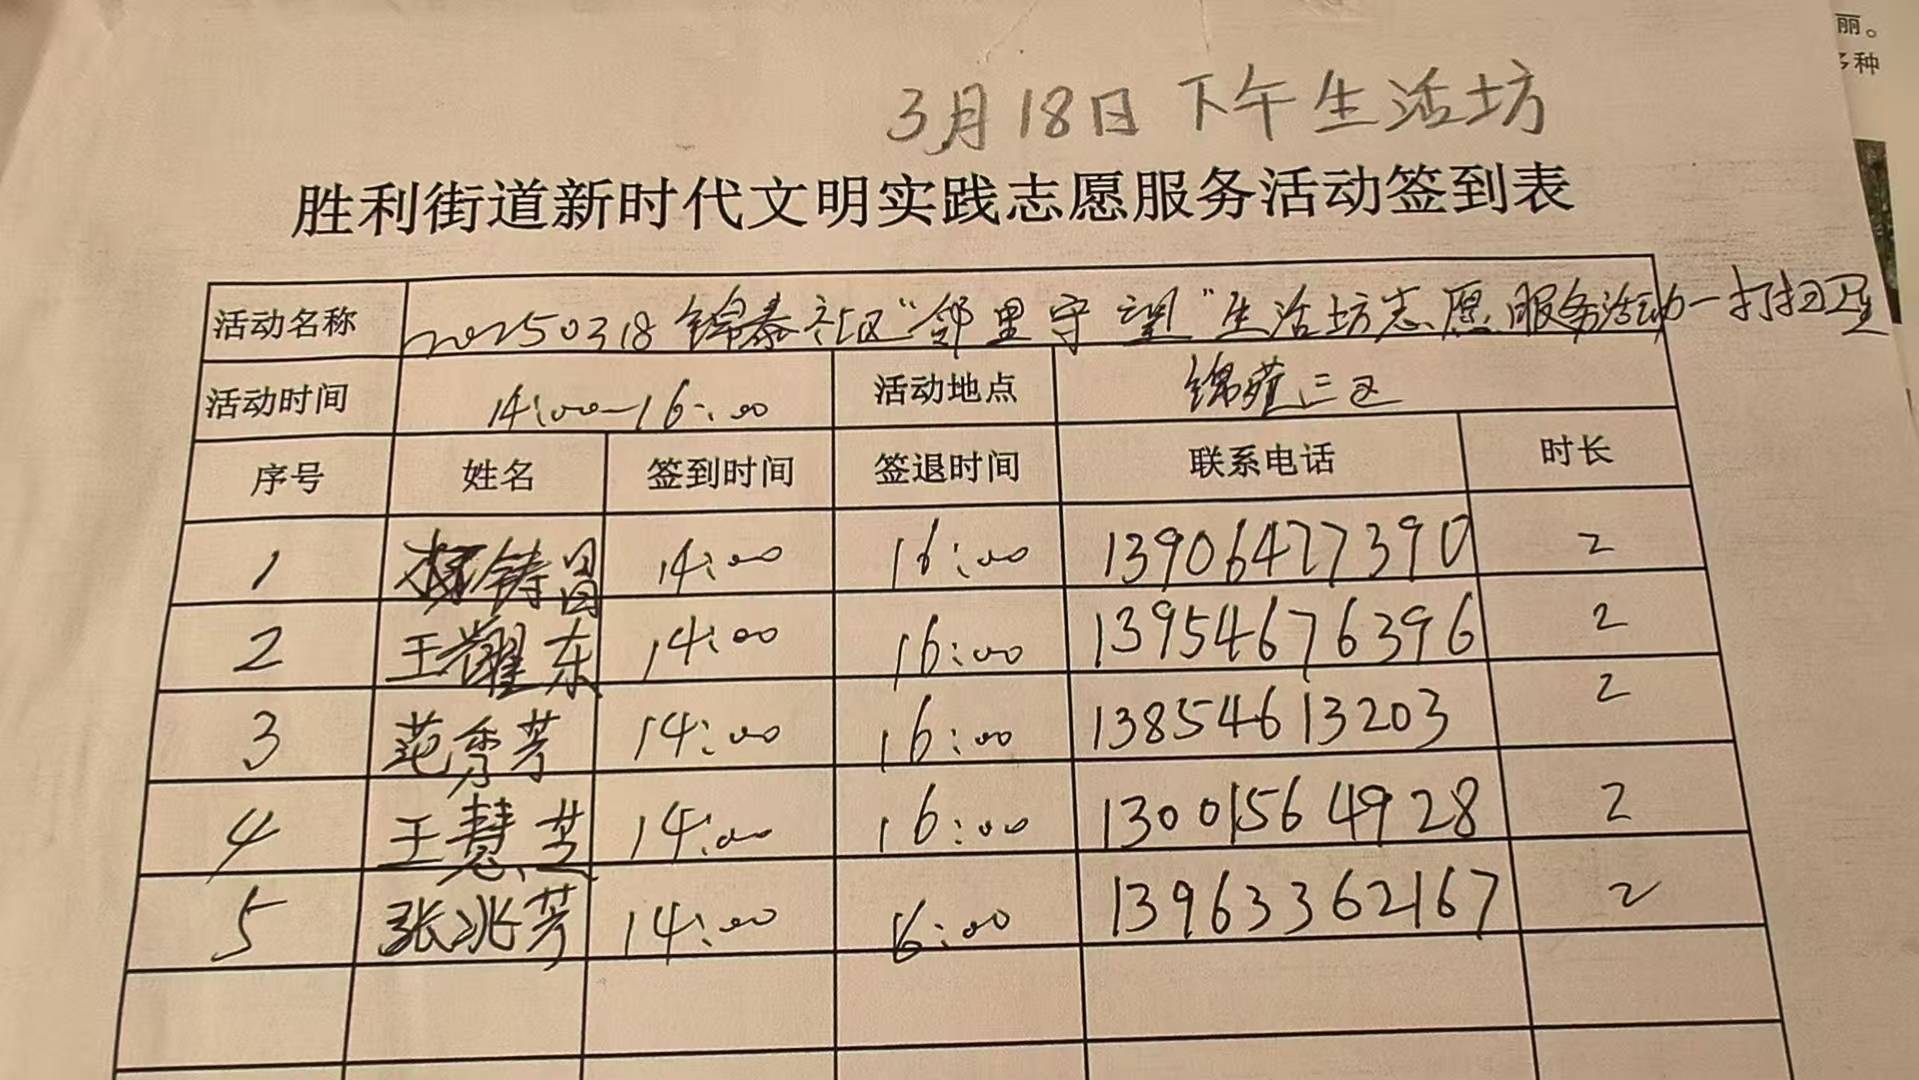 丽。
多种
3月18日下午生活坊
胜利街道新时代文明实践志愿服务活动签到表
活动名称 20250318锦泰社区“邻里守望”生活坊志愿服务活动—打扫卫生
活动时间 14:00-16:00 活动地点 锦苑三区
序号 姓名 签到时间 签退时间 联系电话 时长
1 铸昌 14:00 16:00 13906477390 2
2 王耀东 14:00 16:00 13954676396 2
3 范秀芳 14:00 16:00 13854613203 2
4 王慧芝 14:00 16:00 13001564928 2
5 张兆芳 14:00 16:00 13963362167 2